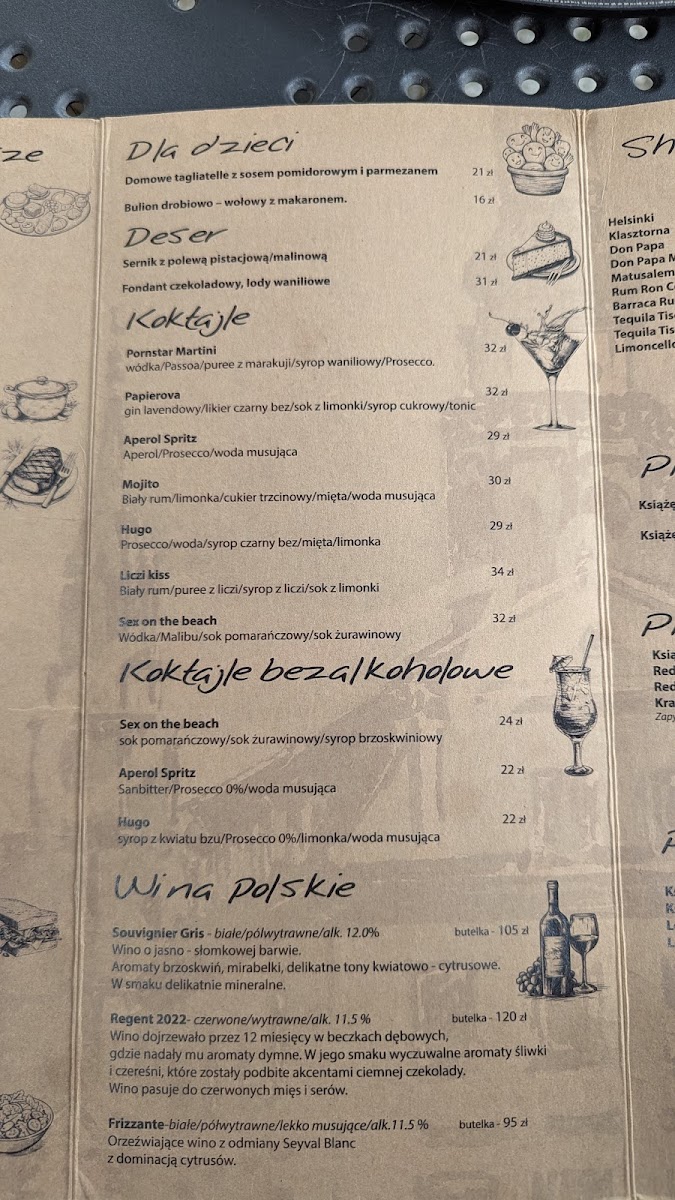 ze
Dla dzieci
Domowe tagliatelle z sosem pomidorowym i parmezanem 21 zł
Bulion drobiowo – wołowy z makaronem. 16 zł
Deser
Sernik z polewą pistacjową/malinową 21 zł
Fondant czekoladowy, lody waniliowe 31 zł
Koktajle
Pornstar Martini 32 zł
wódka/Passoa/puree z marakuji/syrop waniliowy/Prosecco.
Papierova 32 zł
gin lavendowy/likier czarny bez/sok z limonki/syrop cukrowy/tonic
Aperol Spritz 29 zł
Aperol/Prosecco/woda musująca
Mojito 30 zł
Biały rum/limonka/cukier trzcinowy/mięta/woda musująca
Hugo 29 zł
Prosecco/woda/syrop czarny bez/mięta/limonka
Liczi kiss 34 zł
Biały rum/puree z liczi/syrop z liczi/sok z limonki
Sex on the beach 32 zł
Wódka/Malibu/sok pomarańczowy/sok żurawinowy
Koktajle bezalkoholowe
Sex on the beach 24 zł
sok pomarańczowy/sok żurawinowy/syrop brzoskwiniowy
Aperol Spritz 22 zł
Sanbitter/Prosecco 0%/woda musująca
Hugo 22 zł
syrop z kwiatu bzu/Prosecco 0%/limonka/woda musująca
Wina polskie
Souvignier Gris - białe/pólwytrawne/alk. 12.0% butelka - 105 zł
Wino o jasno - słomkowej barwie.
Aromaty brzoskwiń, mirabelki, delikatne tony kwiatowo - cytrusowe.
W smaku delikatnie mineralne.
Regent 2022- czerwone/wytrawne/alk. 11.5 % butelka - 120 zł
Wino dojrzewało przez 12 miesięcy w beczkach dębowych,
gdzie nadały mu aromaty dymne. W jego smaku wyczuwalne aromaty śliwki
i czereśni, które zostały podbite akcentami ciemnej czekolady.
Wino pasuje do czerwonych mięs i serów.
Frizzante-białe/półwytrawne/lekko musujące/alk.11.5 % butelka - 95 zł
Orzeźwiające wino z odmiany Seyval Blanc
z dominacją cytrusów.
Sh
Helsinki
Klasztorna
Don Papa
Don Papa M
Matusalem
Rum Ron C
Barraca Ru
Tequila Tis
Tequila Tis
Limoncello
Książę
Książę
Ksią
Red
Red
Kra
Zapy